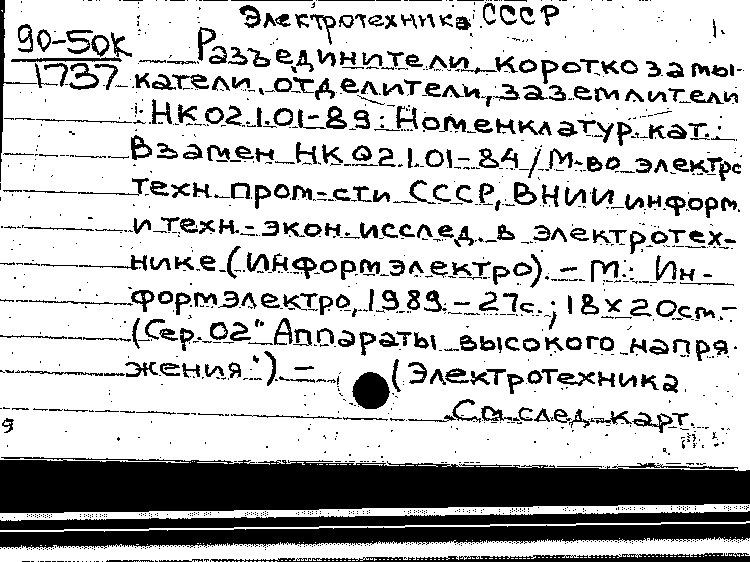 Электротехника СССР 1.
90-50К
1737
Разъединители, короткозамы-
катели, отделители, заземлители
: НК 02.1.01-89 : Номенклатур. кат. :
Взамен НК 02.1.01-84 / М-во электро
техн. пром-сти СССР, ВНИИ информ.
и техн.-экон. исслед. в электротех-
нике (Информэлектро). – М.: Ин-
формэлектро, 1989. – 27с.; 18×20см. –
(Сер. 02 "Аппараты высокого напря-
жения"). – (Электротехника
См. след. карт.
9